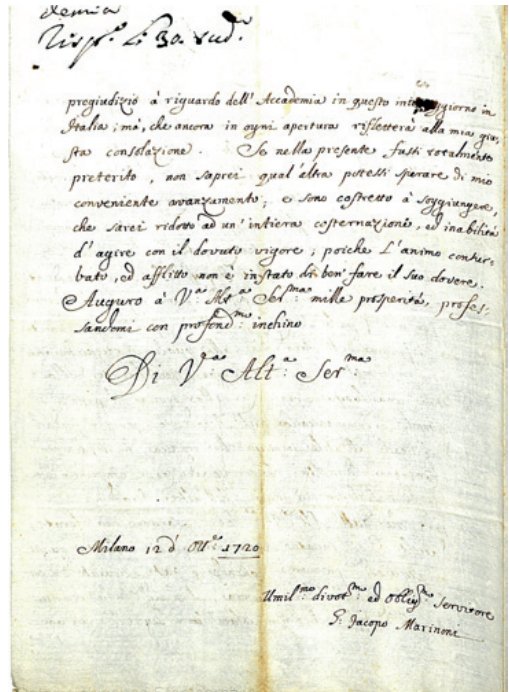 demia
Risp.ᵃ Li 30. sud.ᵒ
pregiudizio à riguardo dell' Accademia in questo mio soggiorno in
Italia; mà, che ancora in ogni apertura rifletterà alla mia giu,,
sta consolazione. Se nella presente fusti totalmente
preterito, non saprei qual'altra potessi sperare di mio
conveniente avanzamento; e sono costretto à soggiungere,
che sarei ridotto ad un' intiera costernazione, ed inabilità
d'agire con il dovuto vigore; poiche L'animo contur,,
bato, ed afflitto non è instato di ben' fare il suo dovere.
Auguro à V.ᵃ Ser.ᵐᵃ mille prosperità, profes,,
sandomi con profond.ᵐᵒ inchino
Di V.ᵃ Alt.ᵃ Ser.ᵐᵃ
Milano 12 d' Ott.ᵉ 1720
Umil.ᵐᵒ divot.ᵐᵒ ed Obblig.ᵐᵒ Servitore
G: Jacopo Marinoni